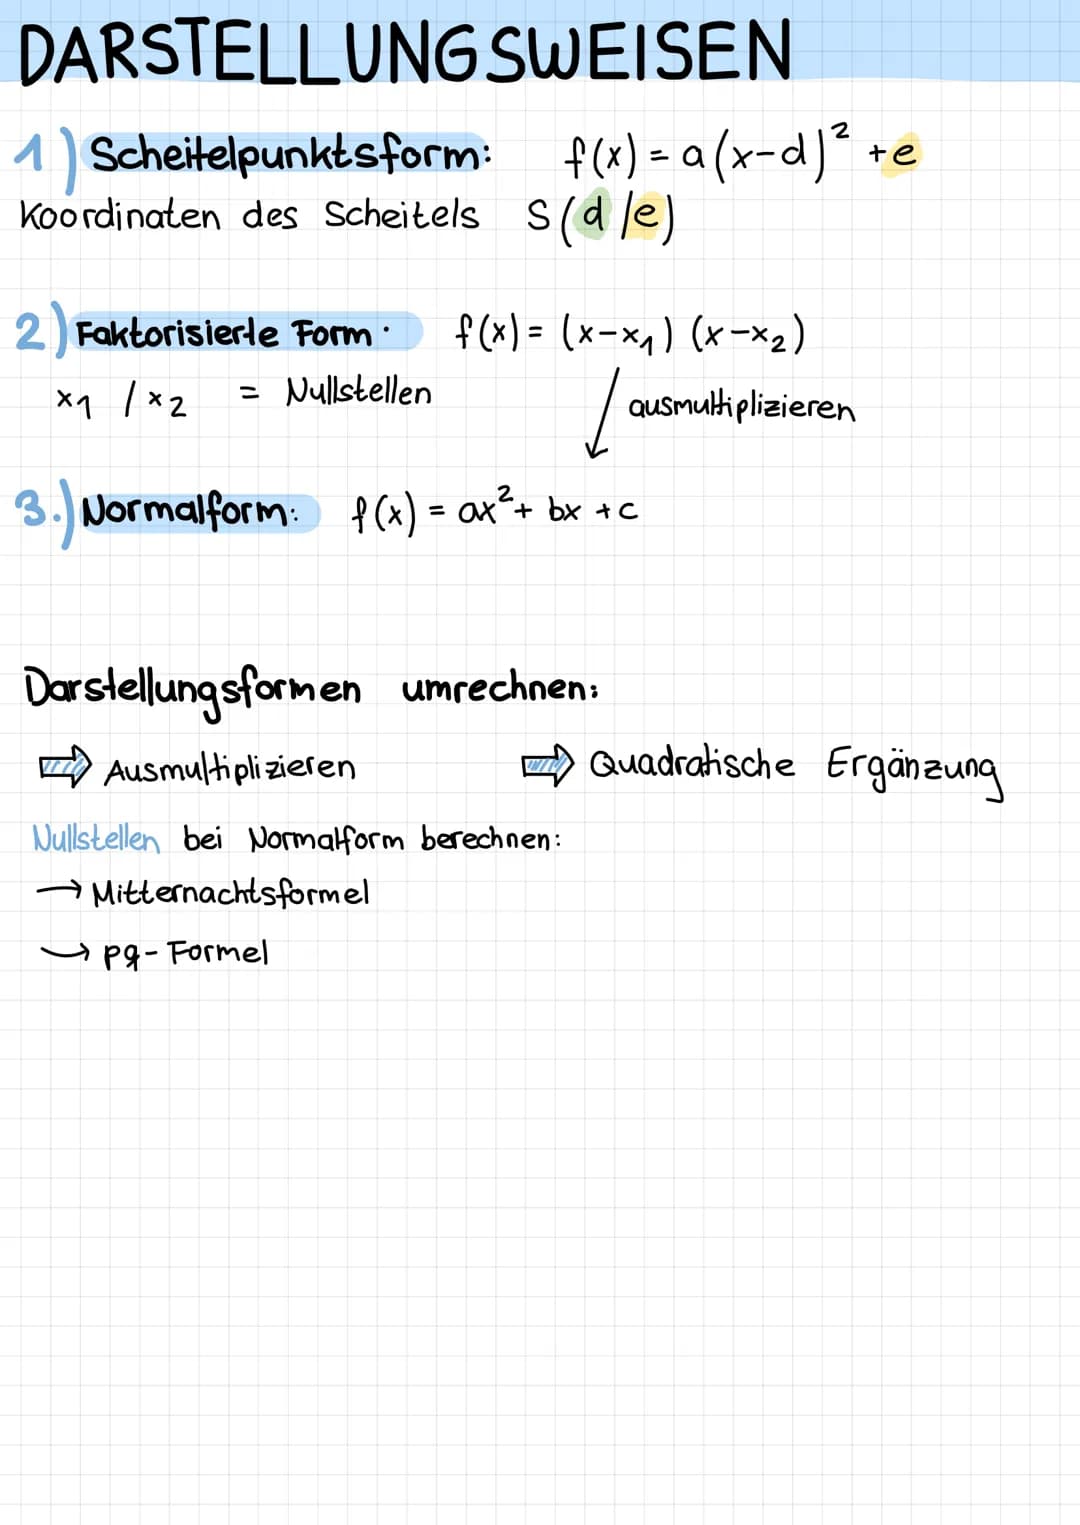 DARSTELLUNGSWEISEN
1) Scheitelpunktsform: f(x) = a(x-d)² +e
Koordinaten des Scheitels S(d/e)
2) Faktorisierte Form: f(x) = (x-x₁) (x-x₂)
x1 / x2 = Nullstellen
ausmultiplizieren
3.) Normalform: f(x) = ax²+ bx +c
Darstellungsformen umrechnen:
⇨ Ausmultiplizieren ⇨ Quadratische Ergänzung
Nullstellen bei Normalform berechnen:
→ Mitternachtsformel
→ pq-Formel